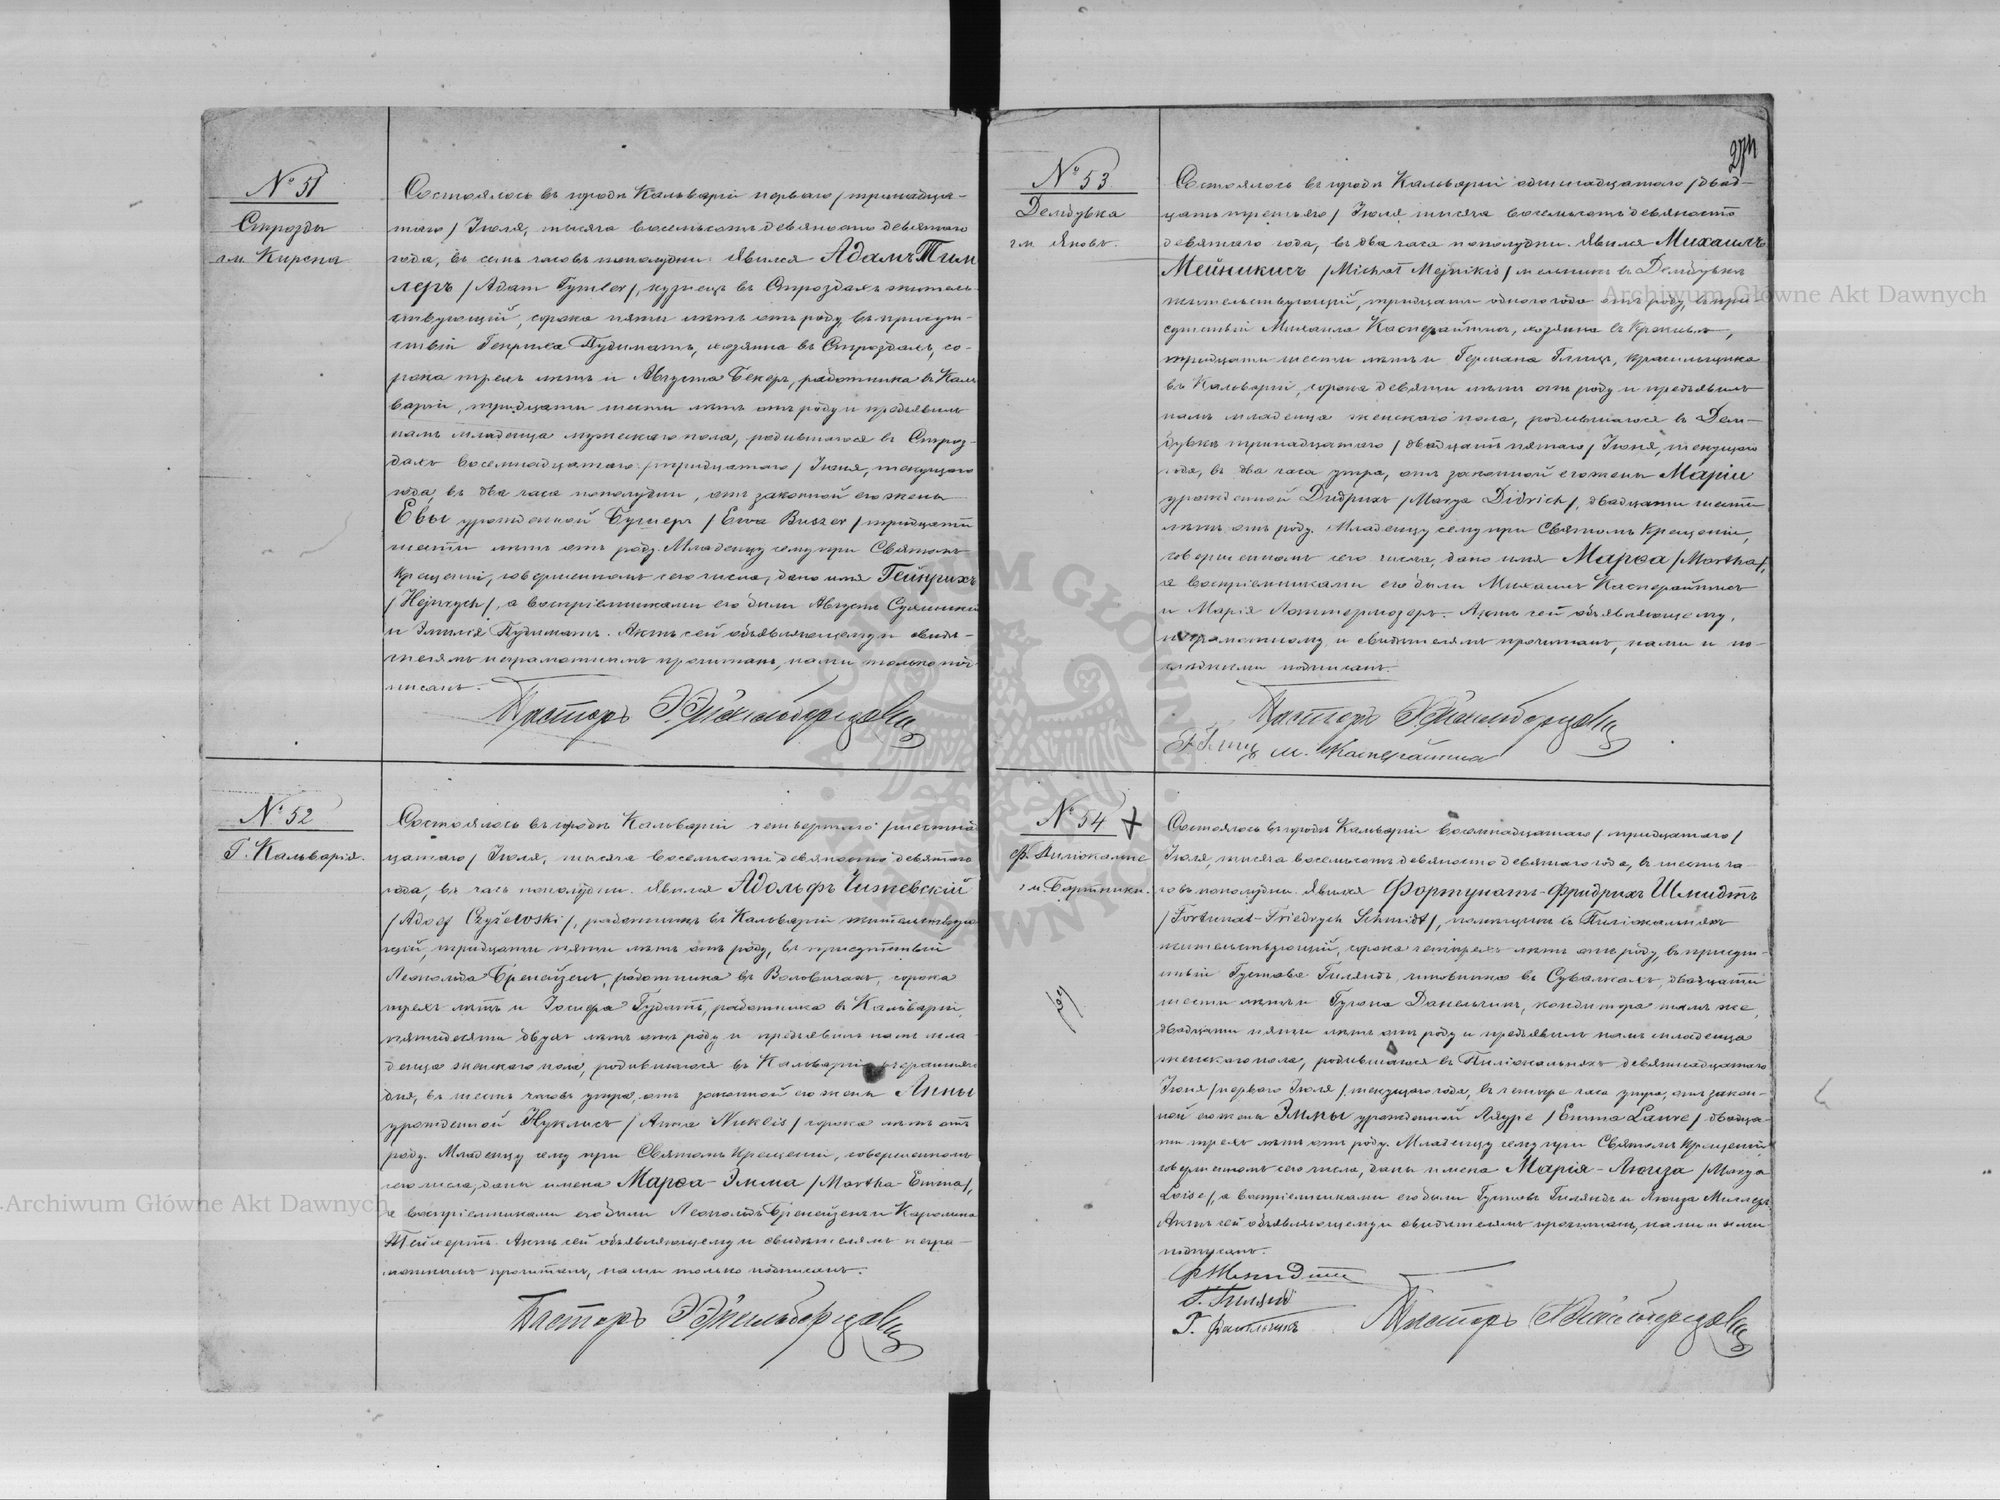 № 51
Строзды
гм. Кирсна
Состоялось въ городѣ Кальваріи перваго /тринадца-
таго/ Іюля, тысяча восемьсотъ девяносто девятаго
года, въ семь часовъ пополудни. Явился Адамъ Тим
леръ /Adam Tymler/, кузнецъ въ Строздахъ житель-
ствующій, сорока пяти лѣтъ отъ роду, въ присут-
ствіи Генриха Пудимата, хозяина въ Строздахъ, со-
рока трехъ лѣтъ и Августа Бекеръ, работника въ Каль
варіи, тридцати шести лѣтъ отъ роду и предъявилъ
намъ младенца мужескаго пола, родившагося въ Строз-
дахъ восемнадцатаго /тридцатаго/ Іюня, текущаго
года, въ два часа пополудни, отъ законной его жены
Евы урожденной Бушеръ /Ewa Buszer/ тридцати
шести лѣтъ отъ роду. Младенцу сему при Святомъ
Крещеніи, совершенномъ сего числа, дано имя Гейнрихъ
/Hejnrych/, а воспріемниками его были Августъ
и Эмилія Пудиматъ. Актъ сей объявляющему и свидѣ-
телямъ неграмотнымъ прочитанъ, нами только под-
писанъ.
Пасторъ
№ 52
Г. Кальварія.
Состоялось въ городѣ Кальваріи четвертаго /шестнад
цатаго/ Іюля, тысяча восемьсотъ девяносто девятаго
года, въ часъ пополудни. Явился Адольфъ Чижевскій
/Adolf Czyżewski/, работникъ въ Кальваріи жительствую
щій, тридцати пяти лѣтъ отъ роду, въ присутствіи
Леопольда работника въ Воловичахъ, сорока
трехъ лѣтъ и Іосифа Гудатъ, работника въ Кальваріи,
пятидесяти двухъ лѣтъ отъ роду и предъявилъ намъ мла
денца женскаго пола, родившагося въ Кальваріи вчерашняго
дня, въ шесть часовъ утра, отъ законной его жены Анны
урожденной Нуклисъ /Anna Nuklis/ сорока лѣтъ отъ
роду. Младенцу сему при Святомъ Крещеніи, совершенномъ
сего числа, даны имена Марѳа-Эмма /Martha-Emma/,
а воспріемниками его были Леопольдъ и Каролина
Актъ сей объявляющему и свидѣтелямъ негра-
мотнымъ прочитанъ, нами только подписанъ.
Пасторъ
274
№ 53
Дембувка
гм. Яновъ.
Состоялось въ городѣ Кальваріи одиннадцатаго /двад-
цать третьяго/ Іюля тысяча восемьсотъ девяносто
девятаго года, въ два часа пополудни. Явился Михаилъ
Мейникисъ /Michał Mejnikis/ мельникъ въ Дембувкѣ
жительствующій, тридцати одного года отъ роду, въ при
сутствіи Михаила Касперайтиса, хозяина въ
тридцати шести лѣтъ и Германа Глицъ, красильщика
въ Кальваріи, сорока девяти лѣтъ отъ роду и предъявилъ
намъ младенца женскаго пола, родившагося въ Дем-
бувкѣ тринадцатаго /двадцать пятаго/ Іюня, текущаго
года, въ два часа утра, отъ законной его жены Маріи
урожденной Дидрихъ /Marya Didrich/, двадцати шести
лѣтъ отъ роду. Младенцу сему при Святомъ Крещеніи,
совершенномъ сего числа, дано имя Марѳа /Martha/,
а воспріемниками его были Михаилъ Касперайтисъ
и Марія Актъ сей объявляющему,
неграмотному и свидѣтелямъ прочитанъ, нами и по-
слѣдними подписанъ.
Пасторъ
Г Глицъ М. Касперайтисъ
№ 54
ф.
гм. Бартники.
Состоялось въ городѣ Кальваріи восемнадцатаго /тридцатаго/
Іюля, тысяча восемьсотъ девяносто девятаго года, въ шесть ча-
совъ пополудни. Явился Фортунатъ-Фридрихъ Шмидтъ
/Fortunat-Friedrych Schmidt/, помѣщикъ въ
жительствующій, сорока четырехъ лѣтъ отъ роду, въ присут-
ствіи Густава чиновника въ Сувалкахъ, двадцати
шести лѣтъ и Гугона кондитора тамъ же,
двадцати пяти лѣтъ отъ роду и предъявилъ намъ младенца
женскаго пола, родившагося въ девятнадцатаго
Іюня /перваго Іюля/ текущаго года, въ четыре часа утра, отъ закон-
ной его жены Эммы урожденной Лауре /Emma Laure/ двадца-
ти трехъ лѣтъ отъ роду. Младенцу сему при Святомъ Крещеніи
совершенномъ сего числа, даны имена Марія-Люиза /Marya
Loise/, а воспріемниками его были Густавъ и Люиза Миллеръ.
Актъ сей объявляющему и свидѣтелямъ прочитанъ, нами и ими
подписанъ.
Ф Шмидтъ
Г.
Г.
Пасторъ
Archiwum Główne Akt Dawnych
Archiwum Główne Akt Dawnych
ARCHIWUM GŁÓWNE AKT DAWNYCH